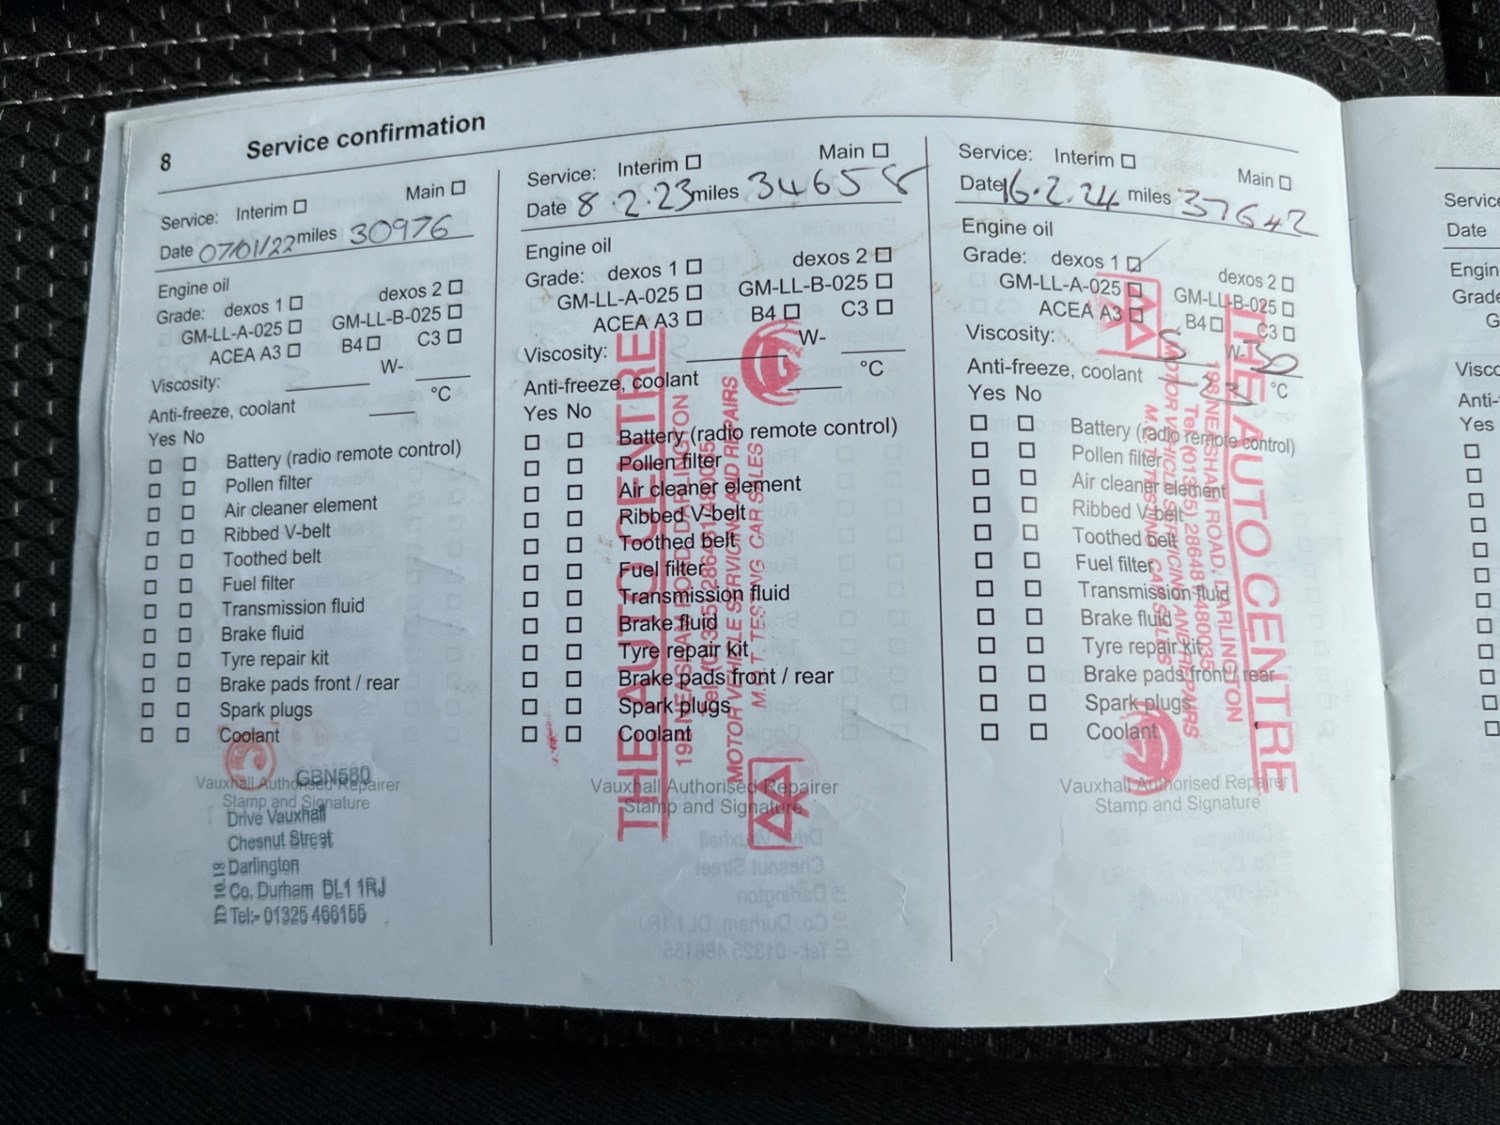 8 Service confirmation
Service: Interim Main
Date 07/01/22 miles 30976
Engine oil
Grade: dexos 1 dexos 2
GM-LL-A-025 GM-LL-B-025
ACEA A3 B4 C3
Viscosity: W-
Anti-freeze, coolant °C
Yes No
Battery (radio remote control)
Pollen filter
Air cleaner element
Ribbed V-belt
Toothed belt
Fuel filter
Transmission fluid
Brake fluid
Tyre repair kit
Brake pads front / rear
Spark plugs
Coolant
GBN580
Vauxhall Authorised Repairer
Stamp and Signature
Drive Vauxhall
Chesnut Street
Darlington
Co. Durham DL1 1RJ
Tel:- 01325 466155
Service: Interim Main
Date 8.2.23 miles 34658
Engine oil
Grade: dexos 1 dexos 2
GM-LL-A-025 GM-LL-B-025
ACEA A3 B4 C3
Viscosity: W-
Anti-freeze, coolant °C
Yes No
Battery (radio remote control)
Pollen filter
Air cleaner element
Ribbed V-belt
Toothed belt
Fuel filter
Transmission fluid
Brake fluid
Tyre repair kit
Brake pads front / rear
Spark plugs
Coolant
Vauxhall Authorised Repairer
Stamp and Signature
THE AUTO CENTRE
198 NEASHAM ROAD, DARLINGTON
Tel: (01325) 286481 480035
MOTOR VEHICLE SERVICING AND REPAIRS
M.O.T. TESTING CAR SALES
AA
Service: Interim Main
Date 16.2.24 miles 37642
Engine oil
Grade: dexos 1 dexos 2
GM-LL-A-025 GM-LL-B-025
ACEA A3 B4 C3
Viscosity: 5 W-30
Anti-freeze, coolant °C
Yes No
Battery (radio remote control)
Pollen filter
Air cleaner element
Ribbed V-belt
Toothed belt
Fuel filter
Transmission fluid
Brake fluid
Tyre repair kit
Brake pads front / rear
Spark plugs
Coolant
Vauxhall Authorised Repairer
Stamp and Signature
THE AUTO CENTRE
198 NEASHAM ROAD, DARLINGTON
Tel: (01325) 286481 480035
MOTOR VEHICLE SERVICING AND REPAIRS
M.O.T. TESTING CAR SALES
AA
Service
Date
Engin
Grade
G
Visco
Anti-
Yes